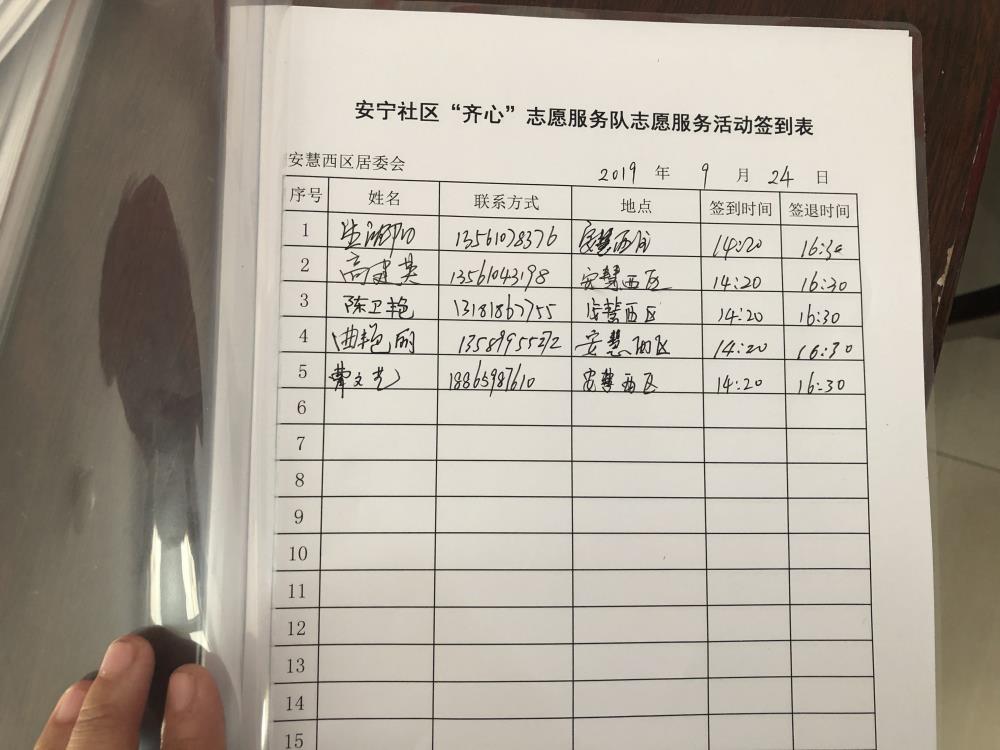 安宁社区“齐心”志愿服务队志愿服务活动签到表
安慧西区居委会 2019 年 9 月 24 日
序号 姓名 联系方式 地点 签到时间 签退时间
1 13561078376 安慧西区 14:20 16:30
2 高建英 13561043198 安慧西区 14:20 16:30
3 陈卫艳 13181867755 安慧西区 14:20 16:30
4 曲艳丽 13589955272 安慧西区 14:20 16:30
5 曹文芝 18865987610 安慧西区 14:20 16:30
6
7
8
9
10
11
12
13
14
15